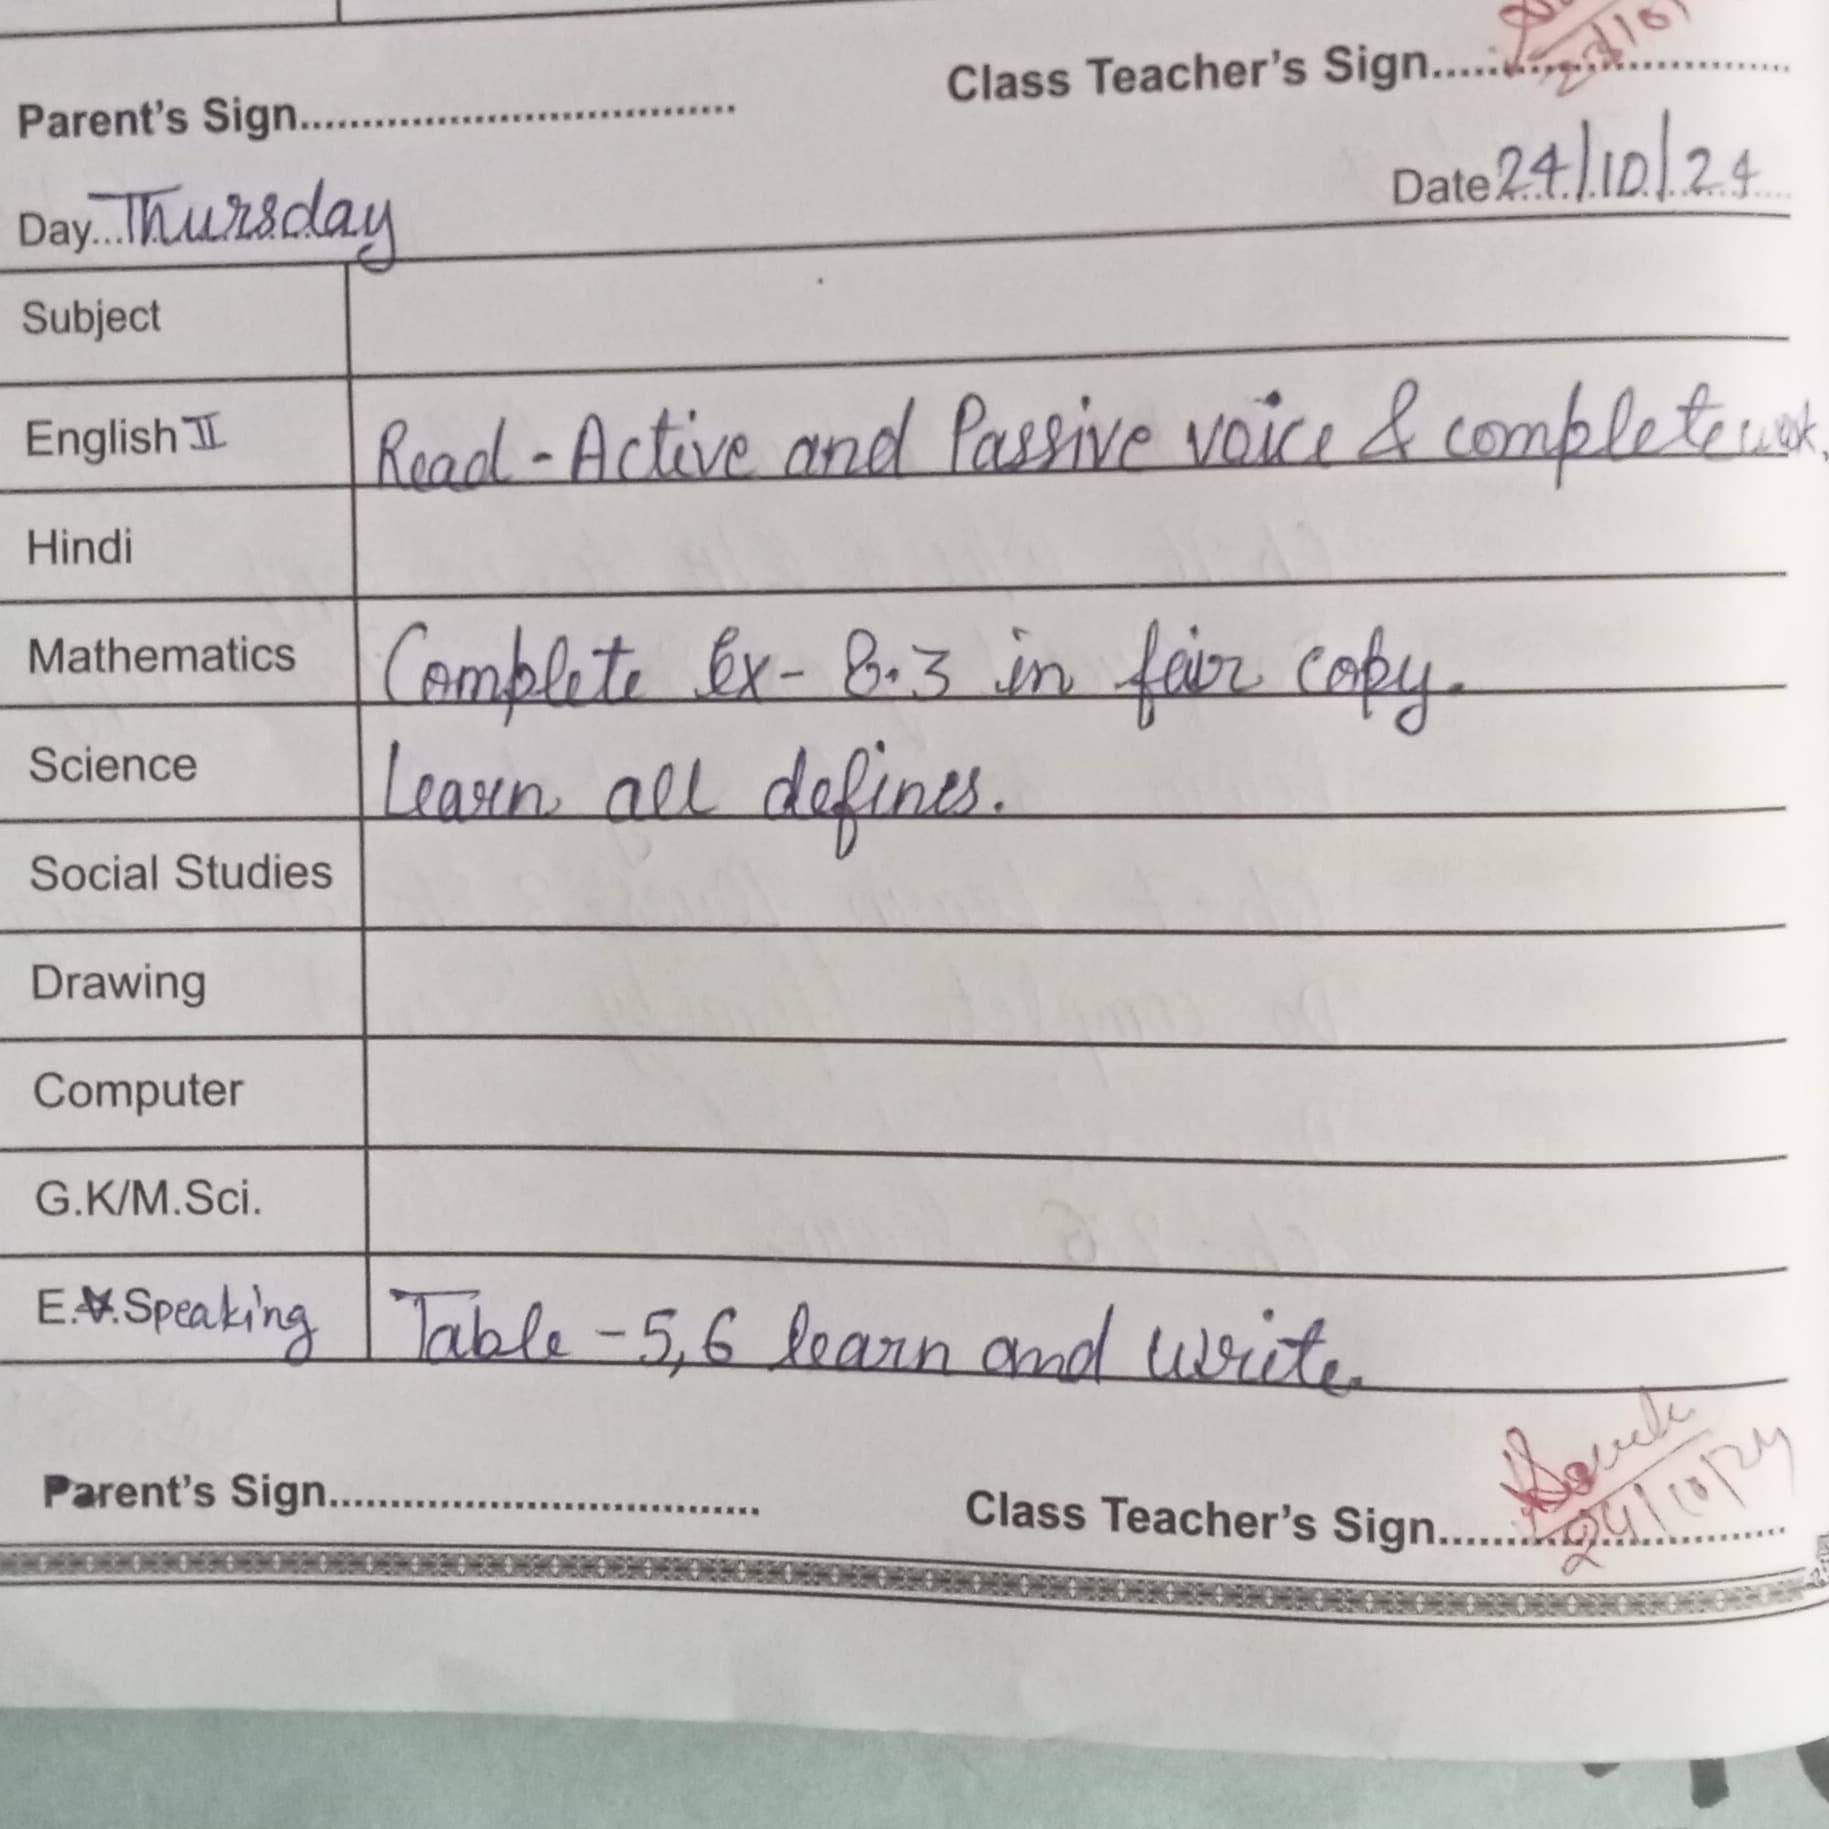 Class Teacher's Sign
Parent's Sign
Date 24/10/24
Day Thursday
Subject
English II Read - Active and Passive voice & complete work.
Hindi
Mathematics Complete Ex - 8.3 in fair copy.
Science Learn all defines.
Social Studies
Drawing
Computer
G.K/M.Sci.
E. Speaking Table - 5,6 learn and write.
Parent's Sign
Class Teacher's Sign
24/10/24